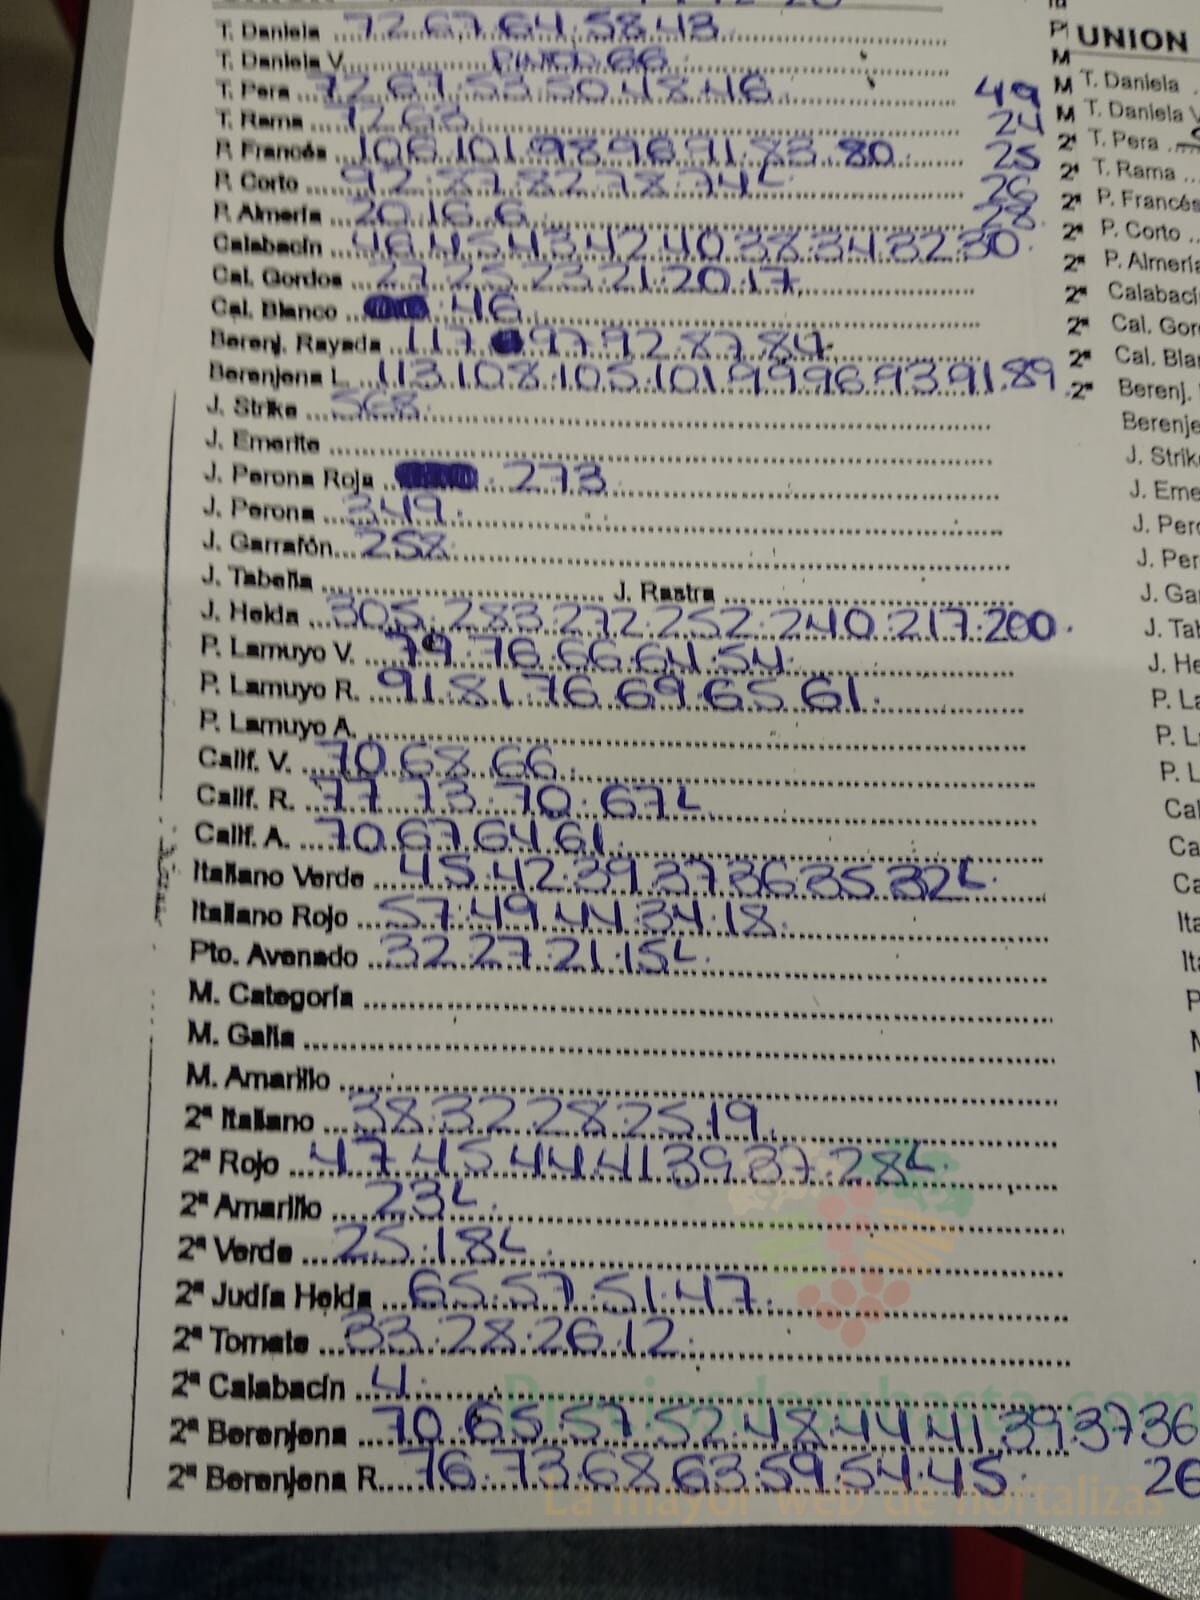 UNION
T. Daniela 72.67.64.58.43
T. Daniela V. PINTO 66
T. Pera 72.67.53.50.48.46
T. Rama 72.63
P. Francés 106.101.98.96.91.83.80.
P. Corto 92.87.82.78.74L
P. Almería 20.16.6
Calabacín 46.45.43.42.40.38.34.32.30.
49
24
25
26
28
Cal. Gordos 27.25.23.21.20.17
Cal. Blanco 46
Berenj. Rayada 117 97.92.87.84.
Berenjena L 113.108.105.101.99.96.93.91.89
J. Strike 368.
J. Emerite
J. Perona Roja 273
J. Perona 349.
J. Garrafón 258.
J. Tabeña J. Rastra
J. Helda 305.283.272.252.240.217.200.
P. Lamuyo V. 79.76.66.64.54.
P. Lamuyo R. 91.81.76.69.65.61.
P. Lamuyo A.
Calif. V. 70.68.66.
Calif. R. 77.73.70.67L
Calif. A. 70.67.64.61.
Italiano Verde 45.42.39.37.36.35.32L.
Italiano Rojo 57.49.44.34.18.
Pto. Avenado 32.27.21.15L.
M. Categoría
M. Galia
M. Amarillo
2ª Italiano 38.32.28.25.19.
2ª Rojo 47.45.44.41.39.37.28L.
2ª Amarillo 23L.
2ª Verde 25.18L.
2ª Judía Helda 65.57.51.47.
2ª Tomate 33.28.26.12.
2ª Calabacín 4.
2ª Berenjena 70.65.57.52.48.44.41.39.37.36
2ª Berenjena R. 76.73.68.63.59.54.45. 26
Preciosdesubasta.com
La mayor web de hortalizas
UNION
T. Daniela
T. Daniela V
T. Pera
T. Rama
P. Francés
P. Corto
P. Almería
Calabací
Cal. Gor
Cal. Bla
Berenj.
Berenje
J. Strik
J. Eme
J. Pero
J. Per
J. Ga
J. Tab
J. He
P. La
P. L
P. L
Cal
Ca
Ca
Ita
Ita
P
M